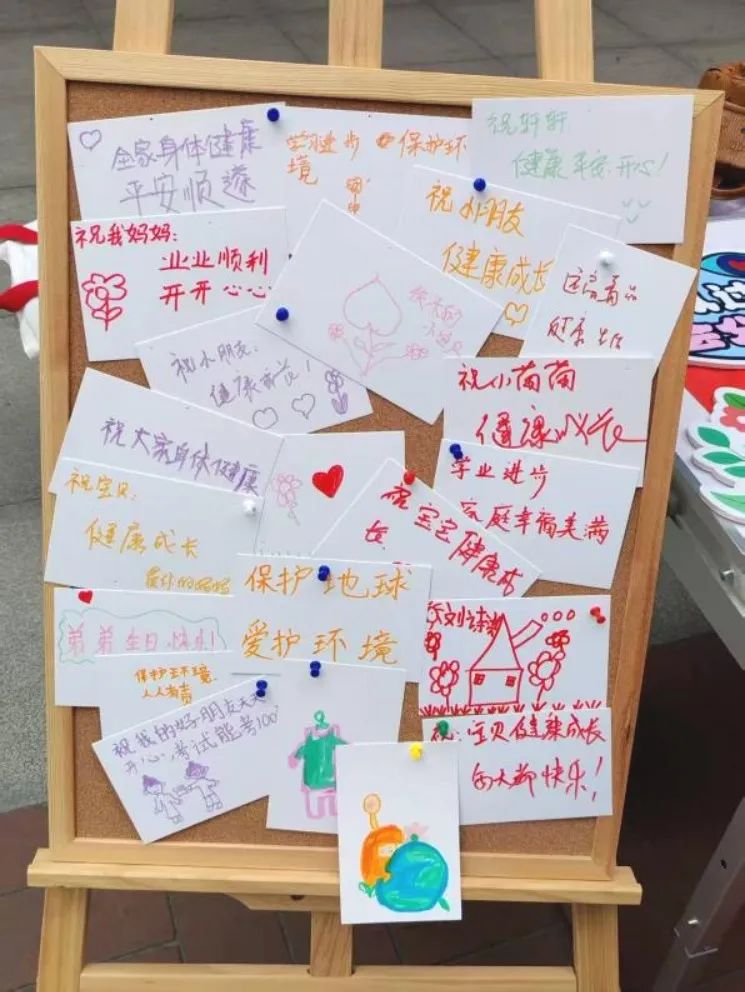 全家身体健康
平安顺遂
学习进步
保护环
境
祝轩轩
健康平安开心！
祝小朋友
健康成长
祝我妈妈：
业业顺利
开开心心
远离毒品
健康生活
快乐的
祝小朋友：
健康成长！
祝小萌萌
健康成长
祝大家身体健康
学业进步
家庭幸福美满
祝宝宝健康成
长
祝宝贝：
健康成长
爱你的妈妈
保护地球
爱护环境
弟弟生日快乐！
保护环境
人人有责
祝我的好朋友天天
开心，考试能考100
祝：宝贝健康成长
快乐！